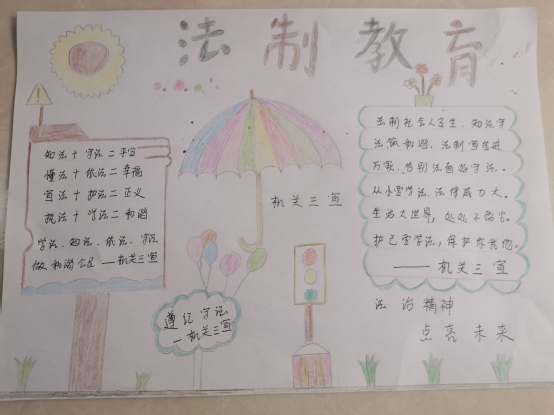 法制教育
知法十守法二平安
懂法十依法二幸福
宣法十护法二正义
执法十学法二和谐
学法、知法、依法、守法
做和谐公民 ——机关三宣
机关三宣
遵纪守法
—机关三宣
法制社会人安全，知法守
法筑和谐，法制宣传进
万家，告别法盲感守法。
从小要学法，法律威力大。
生活大世界，处处不能它。
护己要学法，保护你我他。
——机关三宣
法治精神
点亮未来